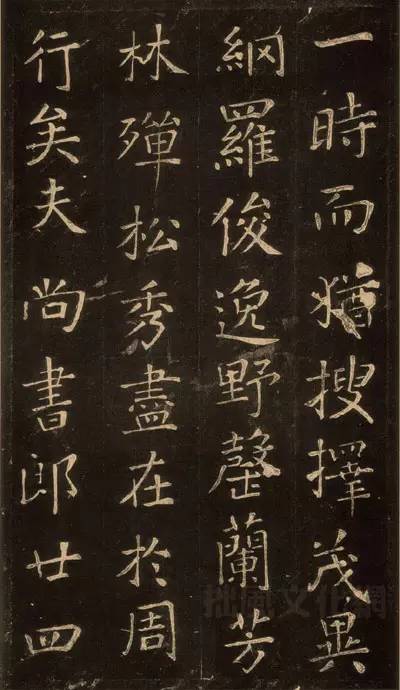 一時而猶搜擇茂異
網羅俊逸野罄蘭芳
林殫松秀盡在於周
行矣夫 尚書郎廿四
拙風文化網